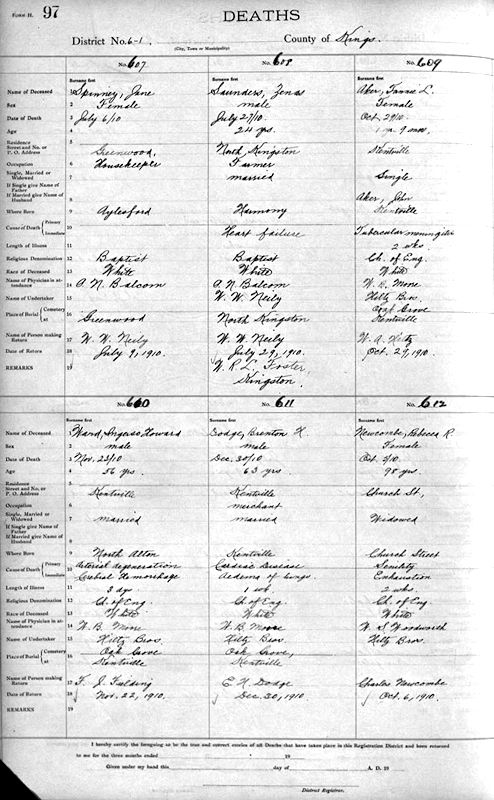 FORM H. 97
DEATHS
District No. 6-1 County of Kings.
(City, Town or Municipality)
No. 607 No. 608 No. 609
Surname first Surname first Surname first
Name of Deceased 1 Spinney, Jane Saunders, Zenas Aker, Fannie L.
Sex 2 Female male Female
Date of Death 3 July 6/10 July 27/10 Oct. 29/10
Age 4 24 yrs. 1 yr. 9 mos.
Residence
Street and No. or 5
P. O. Address Greenwood, North Kingston Kentville
Occupation 6 Housekeeper Farmer
Single, Married or 7 married Single
Widowed
If Single give Name of
Father 8 Aker, John
If Married give Name of
Husband Kentville
Where Born 9 Aylesford Harmony
Cause of Death Primary 10
Immediate Heart failure Tubercular meningitis
Length of Illness 11 2 wks.
Religious Denomination 12 Baptist Baptist Ch. of Eng.
Race of Deceased 13 White White White
Name of Physician in at- 14 A. N. Balcom A. N. Balcom W. B. Moore
tendance
Name of Undertaker 15 W. W. Neily Hiltz Bros.
Place of Burial Cemetery 16 Oak Grove
at Greenwood North Kingston Kentville
Name of Person making 17 W. W. Neily W. W. Neily W. A. Hiltz
Return
Date of Return 18 July 9, 1910. July 29, 1910. Oct. 29, 1910.
REMARKS 19 W. R. L. Foster,
Kingston.
No. 610 No. 611 No. 612
Surname first Surname first Surname first
Name of Deceased 1 Ward, Howard Dodge, Brenton H. Newcombe, Rebecca R.
Sex 2 male male Female
Date of Death 3 Nov. 22/10 Dec. 30/10 Oct. 5/10
Age 4 56 yrs. 63 yrs 98 yrs
Residence
Street and No. or 5
P. O. Address Kentville Kentville Church St,
Occupation 6 merchant
Single, Married or 7 married married Widowed
Widowed
If Single give Name of
Father 8
If Married give Name of
Husband
Where Born 9 North Alton Kentville Church Street
Cause of Death Primary 10 Arterial degeneration Cardiac Disease Senility
Immediate Cerebral Hemorrhage Aedema of lungs. Exhaustion
Length of Illness 11 3 dys 1 wk 2 wks.
Religious Denomination 12 Ch. of Eng. Ch. of Eng. Ch. of Eng
Race of Deceased 13 White White White
Name of Physician in at- 14 W. B. Moore W. B. Moore W. S. Woodworth
tendance
Name of Undertaker 15 Hiltz Bros. Hiltz Bros Hiltz Bros.
Place of Burial Cemetery 16 Oak Grove Oak Grove,
at Kentville Kentville
Name of Person making 17 F. J. Fielding E. H. Dodge Charles Newcombe
Return
Date of Return 18 Nov. 22, 1910. Dec. 30, 1910 Oct. 6, 1910.
REMARKS 19
I hereby certify the foregoing to be the true and correct entries of all Deaths that have taken place in this Registration District and been returned
to me for the three months ended 19
Given under my hand this day of A. D. 19
District Registrar.